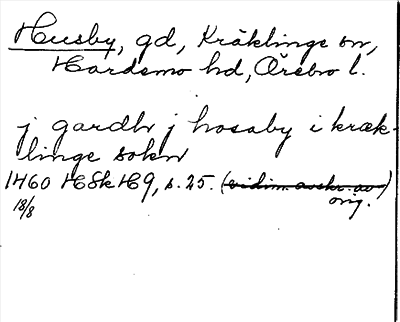 Husby, gd, Kräklinge sn,
Hardemo hd, Örebro l.
j gardh j hosaby i kræk-
linge sokn
1460 HSH H9, s. 25. (vidim. avskr. av)
18/8 orig.